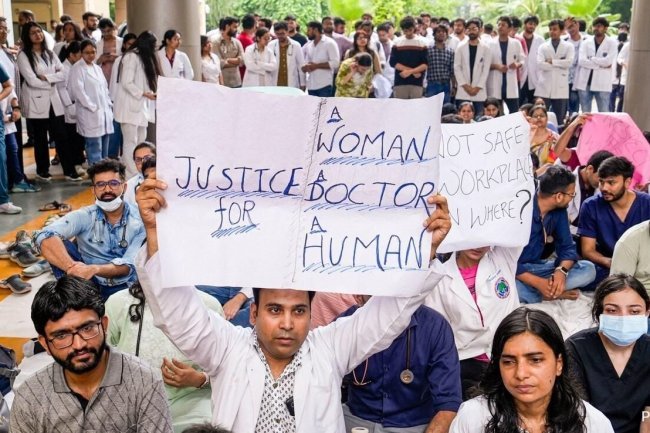 JUSTICE
for
A
WOMAN
A
DOCTOR
A
HUMAN
NOT SAFE
WORKPLACE
WHERE?